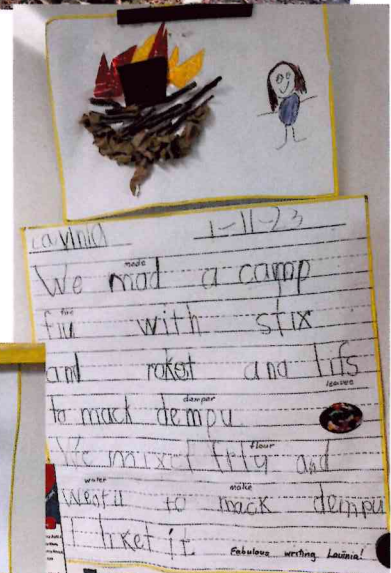 Lavinia 1-11-23
made
We mad a camp
fire
fiu with stix
and rokst and lifs
leaves
damper
to mack dempu.
flour
We mixet flly and
water make
westu to mack dempu
I liket it. Fabulous writing Lavinia!